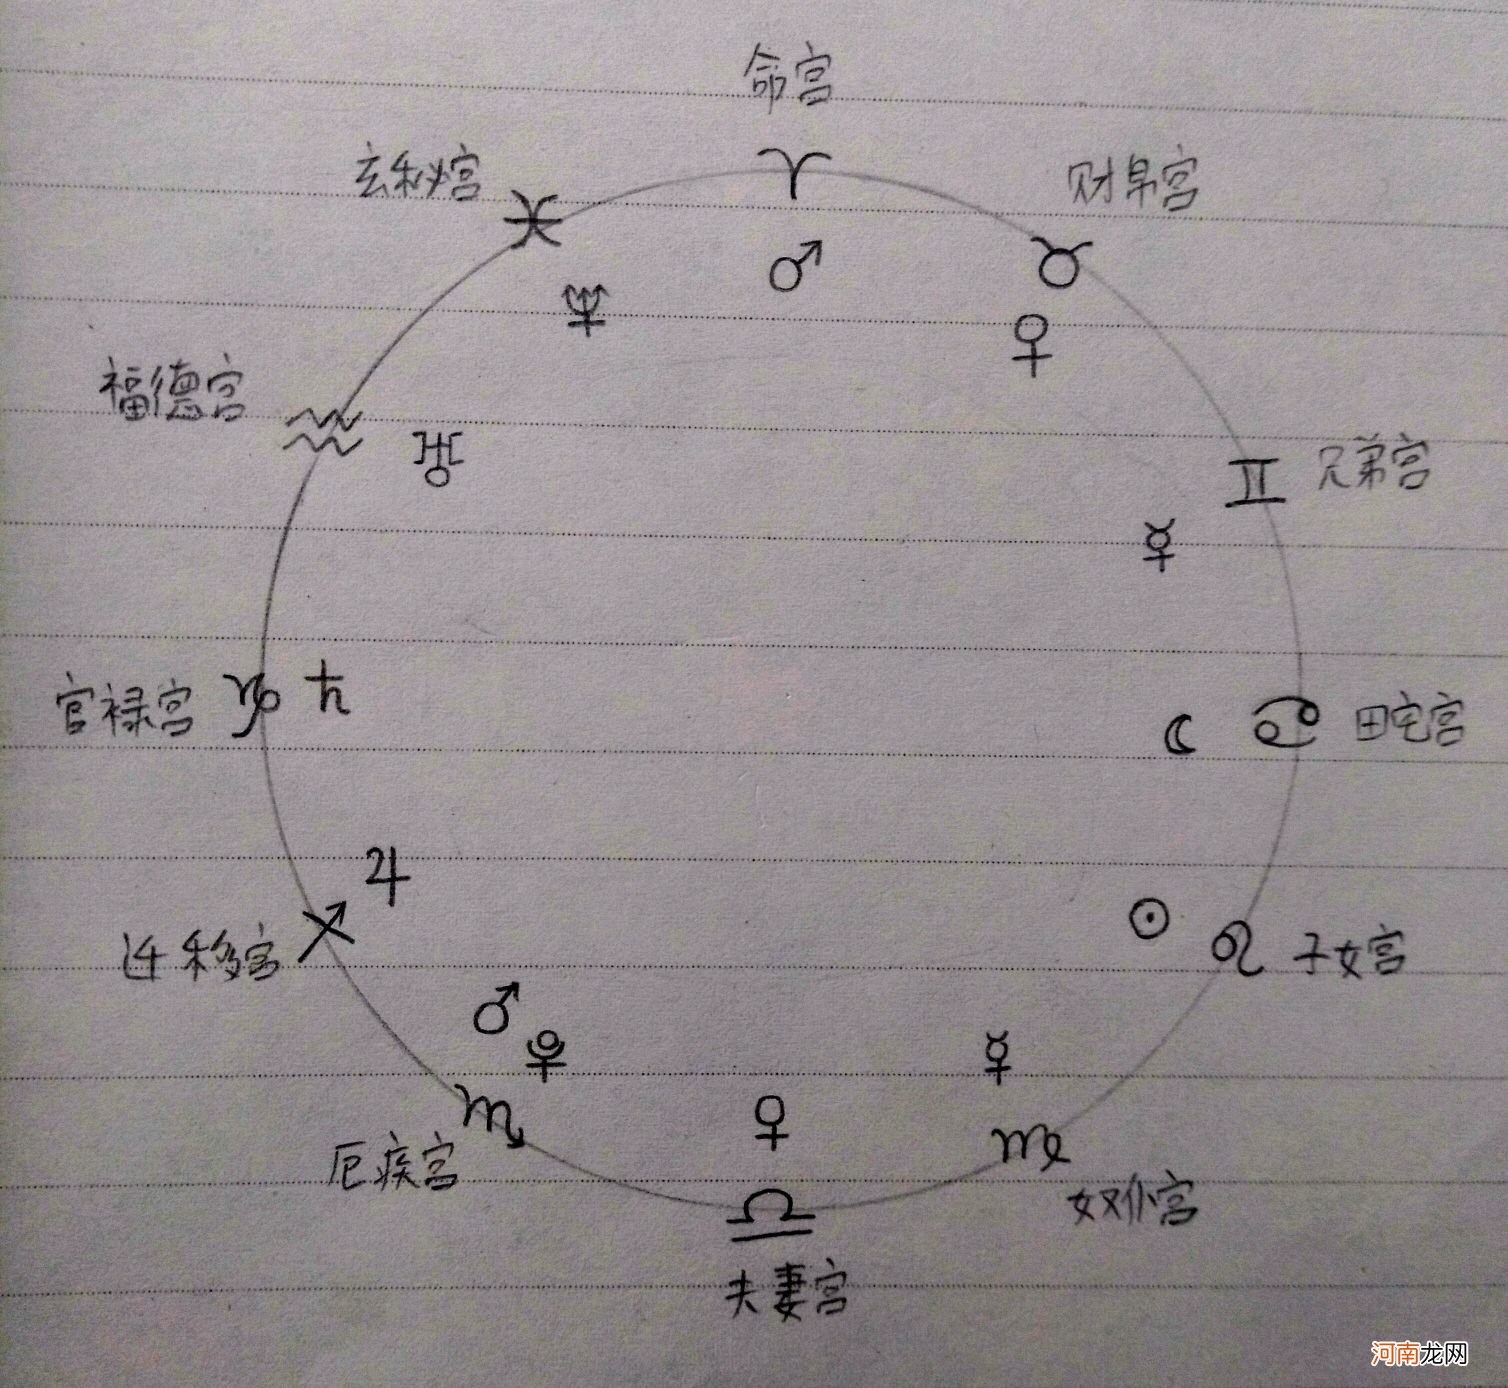 命宫
玄秘宫
♓
♈
财帛宫
♉
♆
♂
♀
福德宫
♒
♅
♊
兄弟宫
☿
官禄宫
♑
♄
☾
♋
田宅宫
♃
迁移宫
♐
☉
♌
子女宫
♂
♇
☿
♏
♀
♍
厄疾宫
♎
奴仆宫
夫妻宫
河南龙网